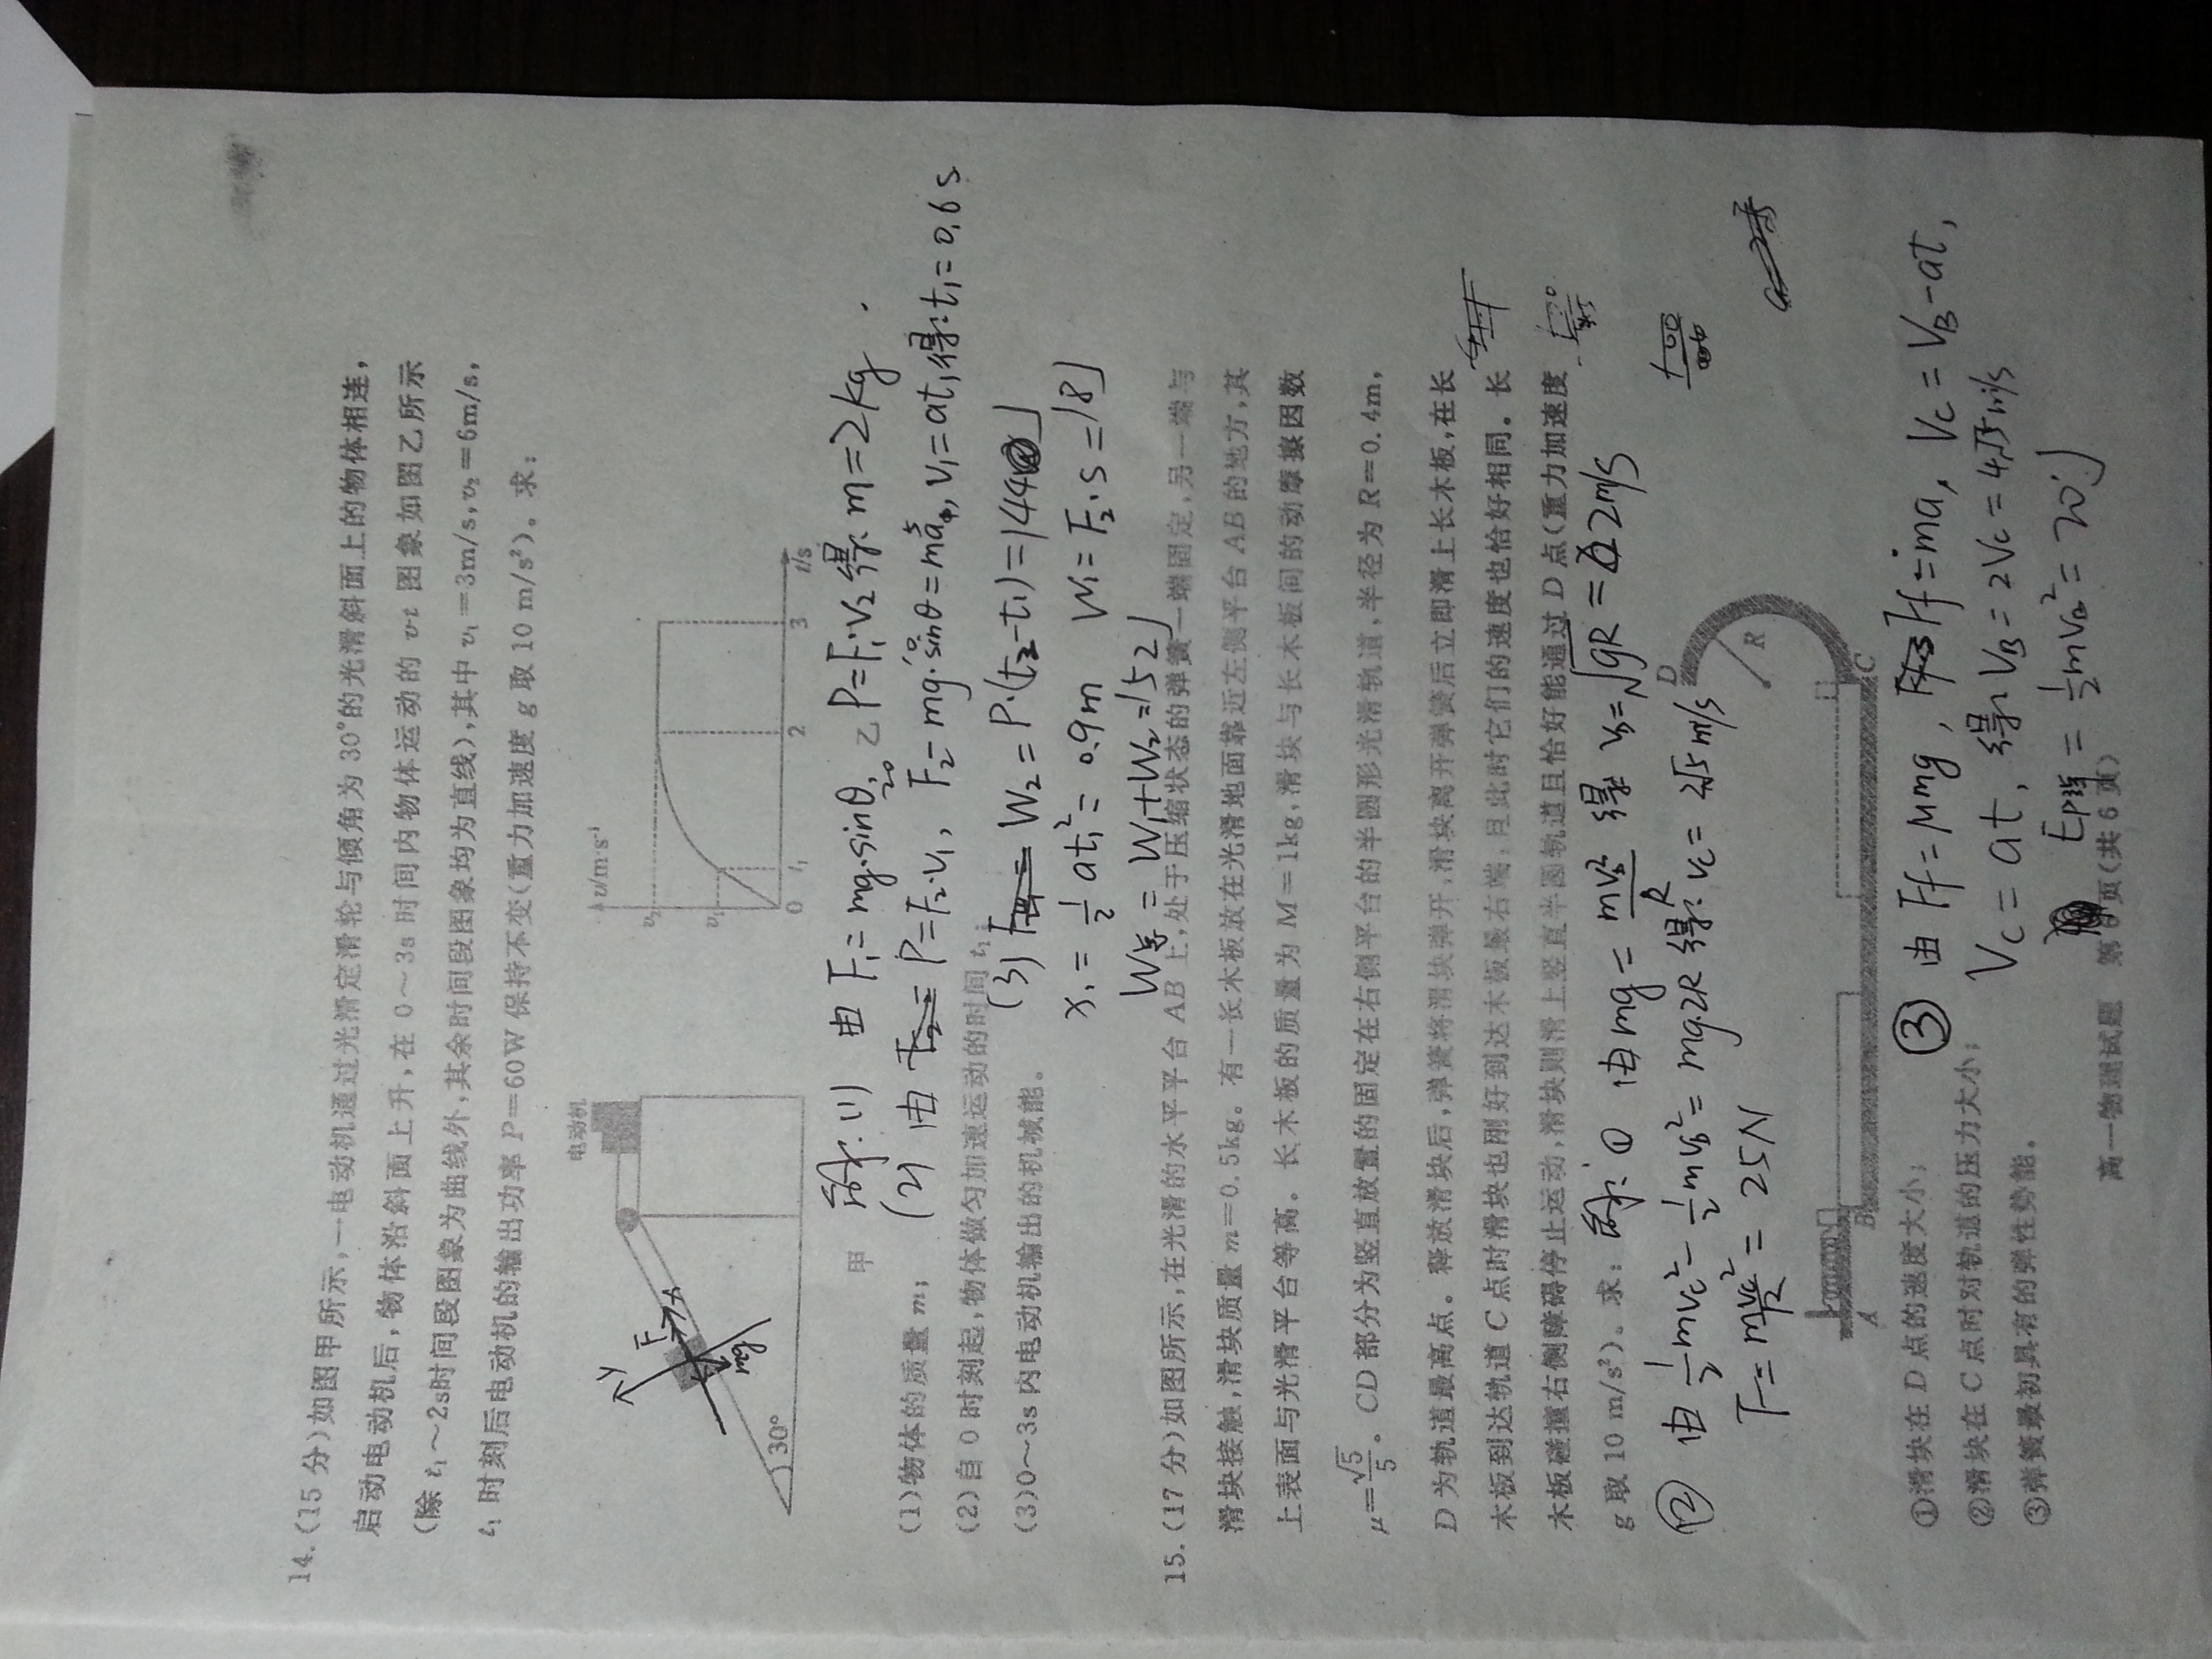 14.(15 分)如图甲所示,一电动机通过光滑定滑轮与倾角为 30°的光滑斜面上的物体相连,
启动电动机后,物体沿斜面上升,在 0～3s 时间内物体运动的 v-t 图象如图乙所示
(除 t₁～2s时间段图象为曲线外,其余时间段图象均为直线),其中 v₁=3m/s,v₂=6m/s,
t₁ 时刻后电动机的输出功率 P=60W 保持不变(重力加速度 g 取 10 m/s²)。求:
电动机
y
F
x
mg
30°
v/m·s⁻¹
v₂
v₁
0 t₁ 2 3 t/s
甲
乙
解:(1) 由 F₁=mg·sinθ, P=F₁·v₂ 得: m=2kg
(1)物体的质量 m;
(2) 由 P=F₂·v₁, F₂-mg·sinθ=ma, v₁=at₁ 得: t₁=0.6s
20 10 5
(2)自 0 时刻起,物体做匀加速运动的时间 t₁;
(3)0～3s 内电动机输出的机械能。
(3) W₂=P·(t₂-t₁)=144J
x₁=½at₁²=0.9m W₁=F₂·s=18J
W总=W₁+W₂=152J
15.(17 分)如图所示,在光滑的水平平台 AB 上,处于压缩状态的弹簧一端固定,另一端与
滑块接触,滑块质量 m=0.5kg。有一长木板放在光滑地面靠近左侧平台 AB 的地方,其
上表面与光滑平台等高。长木板的质量为 M=1kg,滑块与长木板间的动摩擦因数
μ=√5/5。CD 部分为竖直放置的固定在右侧平台的半圆形光滑轨道,半径为 R=0.4m,
D 为轨道最高点。释放滑块后,弹簧将滑块弹开,滑块离开弹簧后立即滑上长木板,在长
木板到达轨道 C 点时滑块也刚好到达木板最右端,且此时它们的速度也恰好相同。长
木板碰撞右侧障碍停止运动,滑块则滑上竖直半圆轨道且恰好能通过 D 点(重力加速度
g 取 10 m/s²)。求:
解: ① 由mg=mv_D²/R 得 v_D=√gR=2m/s
② 由½mv_C²-½mv_D²=mg·2R 得: v_C=2√5m/s
F=mv_C²/R=25N
D
R
A B C
①滑块在 D 点的速度大小;
②滑块在 C 点时对轨道的压力大小;
③弹簧最初具有的弹性势能。
③ 由 Ff=μmg, Ff=ma, V_C=V_B-at,
V_C=at, 得: V_B=2V_C=4√5m/s
Ep弹=½mv_B²=20J
高一物理试题 第6页(共 6 页)